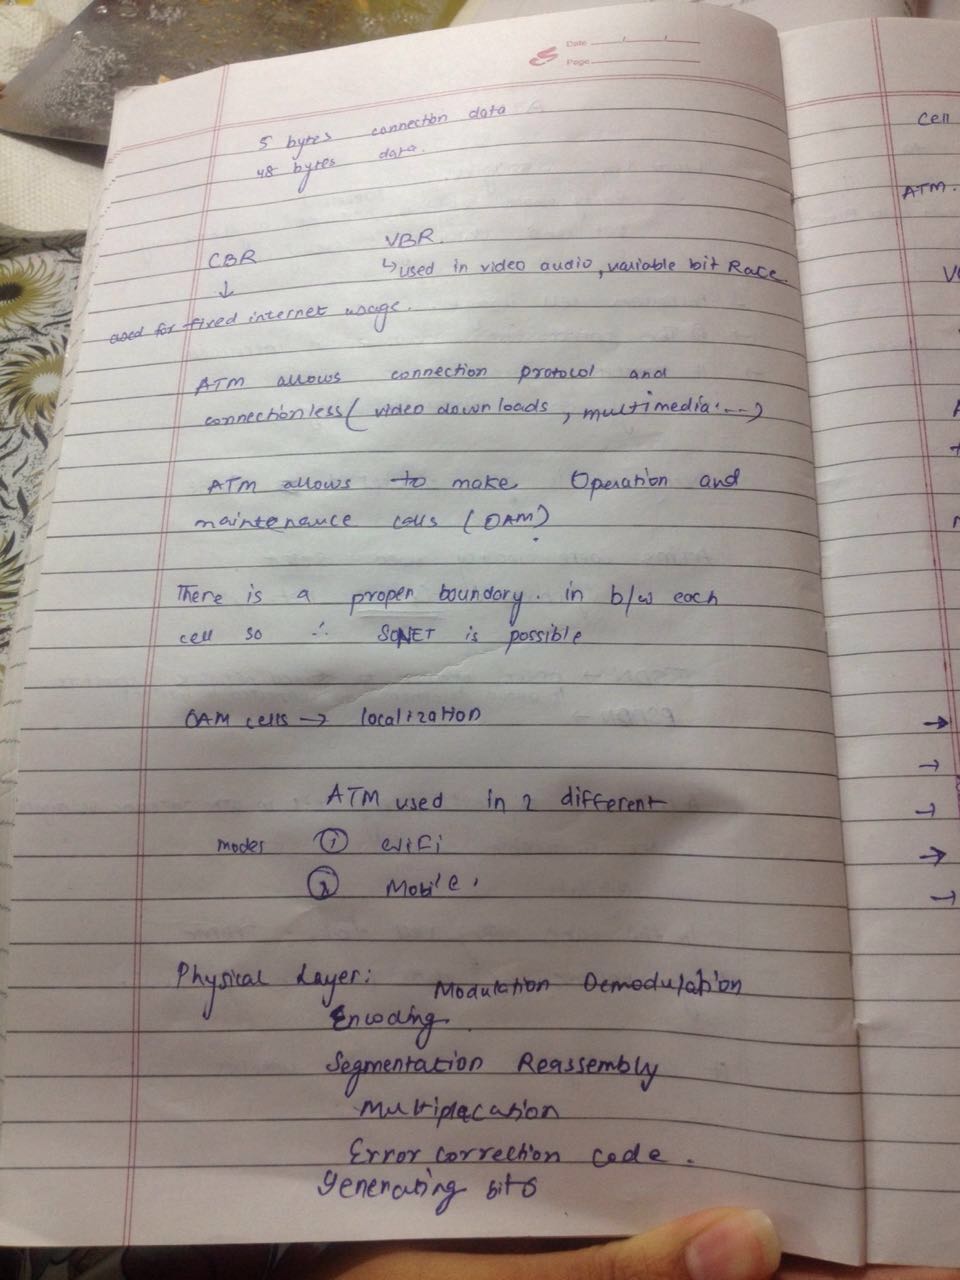 Date
Page
5 bytes connection data
48 bytes data.
CBR VBR.
↓ ↳ used in video audio, variable bit Race.
used for fixed internet usage.
ATM allows connection protocol and
connectionless (video downloads, multimedia....)
ATM allows to make Operation and
maintenance cells (OAM)
There is a proper boundary. in b/w each
cell so ∴ SONET is possible
OAM cells → localization
ATM used in 2 different
modes ① WiFi
② Mobile.
Physical Layer: Modulation Demodulation
Encoding.
Segmentation Reassembly
Multiplecation
Error correction code.
generating bits
Cell
ATM.
→
→
→
→
→